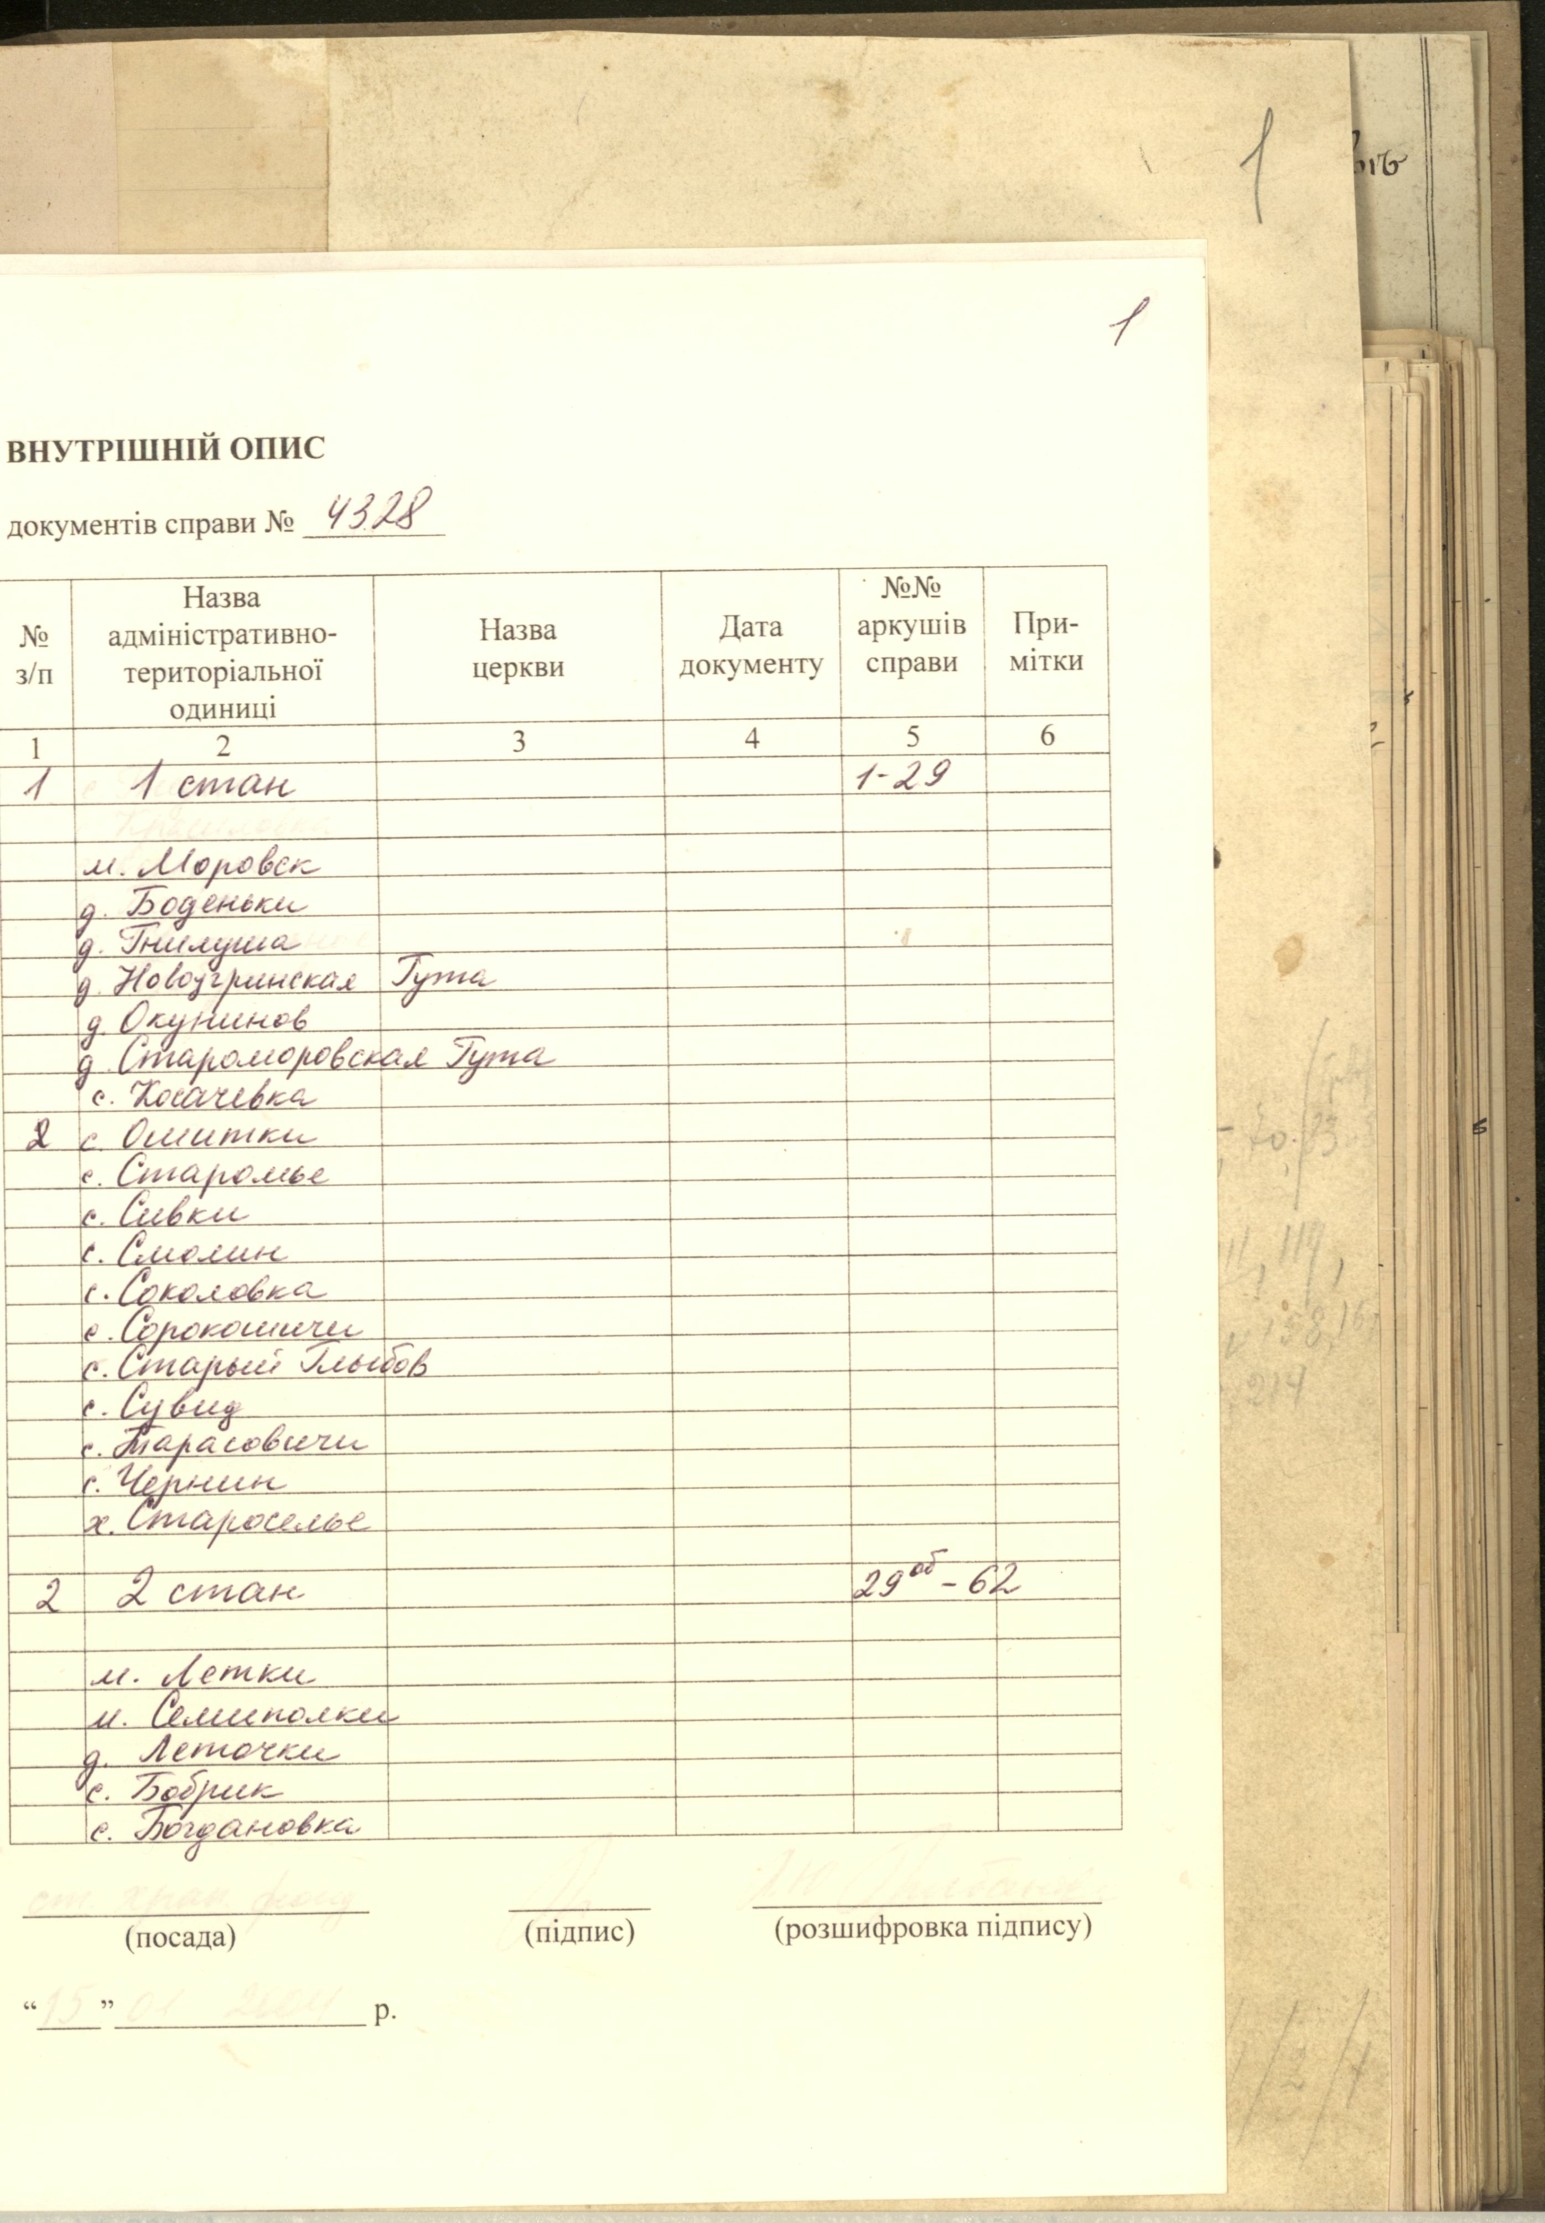 віѣ
1
1
ВНУТРІШНІЙ ОПИС
документів справи № 4328
№ з/п | Назва адміністративно-територіальної одиниці | Назва церкви | Дата документу | №№ аркушів справи | При-мітки
1 2 3 4 5 6
1 1 стан 1-29
м. Моровск
д. Боденьки
д. Гнилуша
д. Новоугринская Гута
д. Окунинов
д. Староморовская Гута
с. Косачевка
2 с. Омитки
с. Старомье
с. Сивки
с. Смолин
с. Соколовка
с. Сорокошичи
с. Старый Глыбов
с. Сувид
с. Тарасовичи
с. Чернин
х. Староселье
2 2 стан 29об - 62
м. Летки
м. Семиполки
д. Леточки
с. Бобрик
с. Богдановка
ст. хран. фонд
(посада) (підпис) (розшифровка підпису)
“15” 01 р.